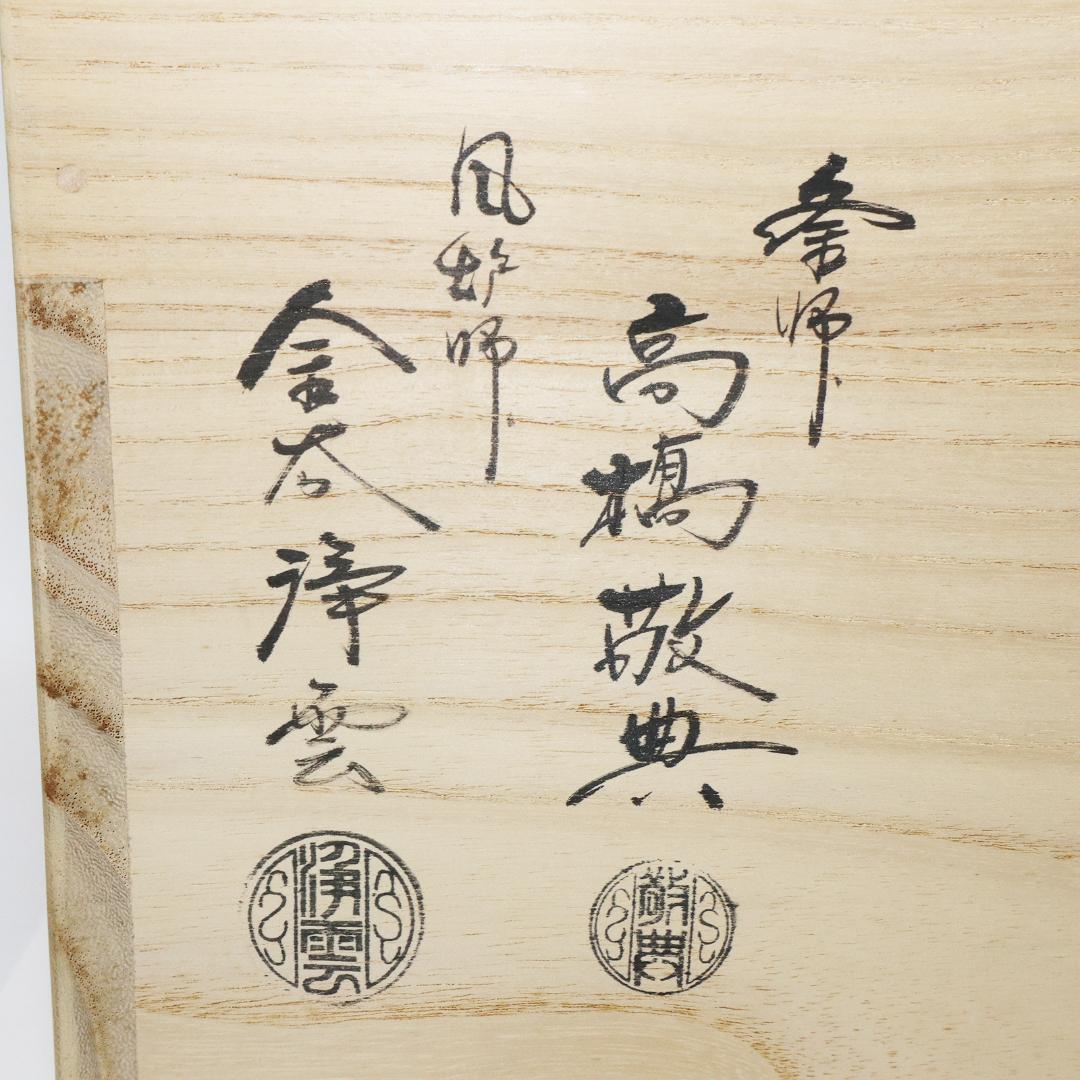 釜師
高橋敬典
風炉師
金谷浄雲
敬典
浄雲